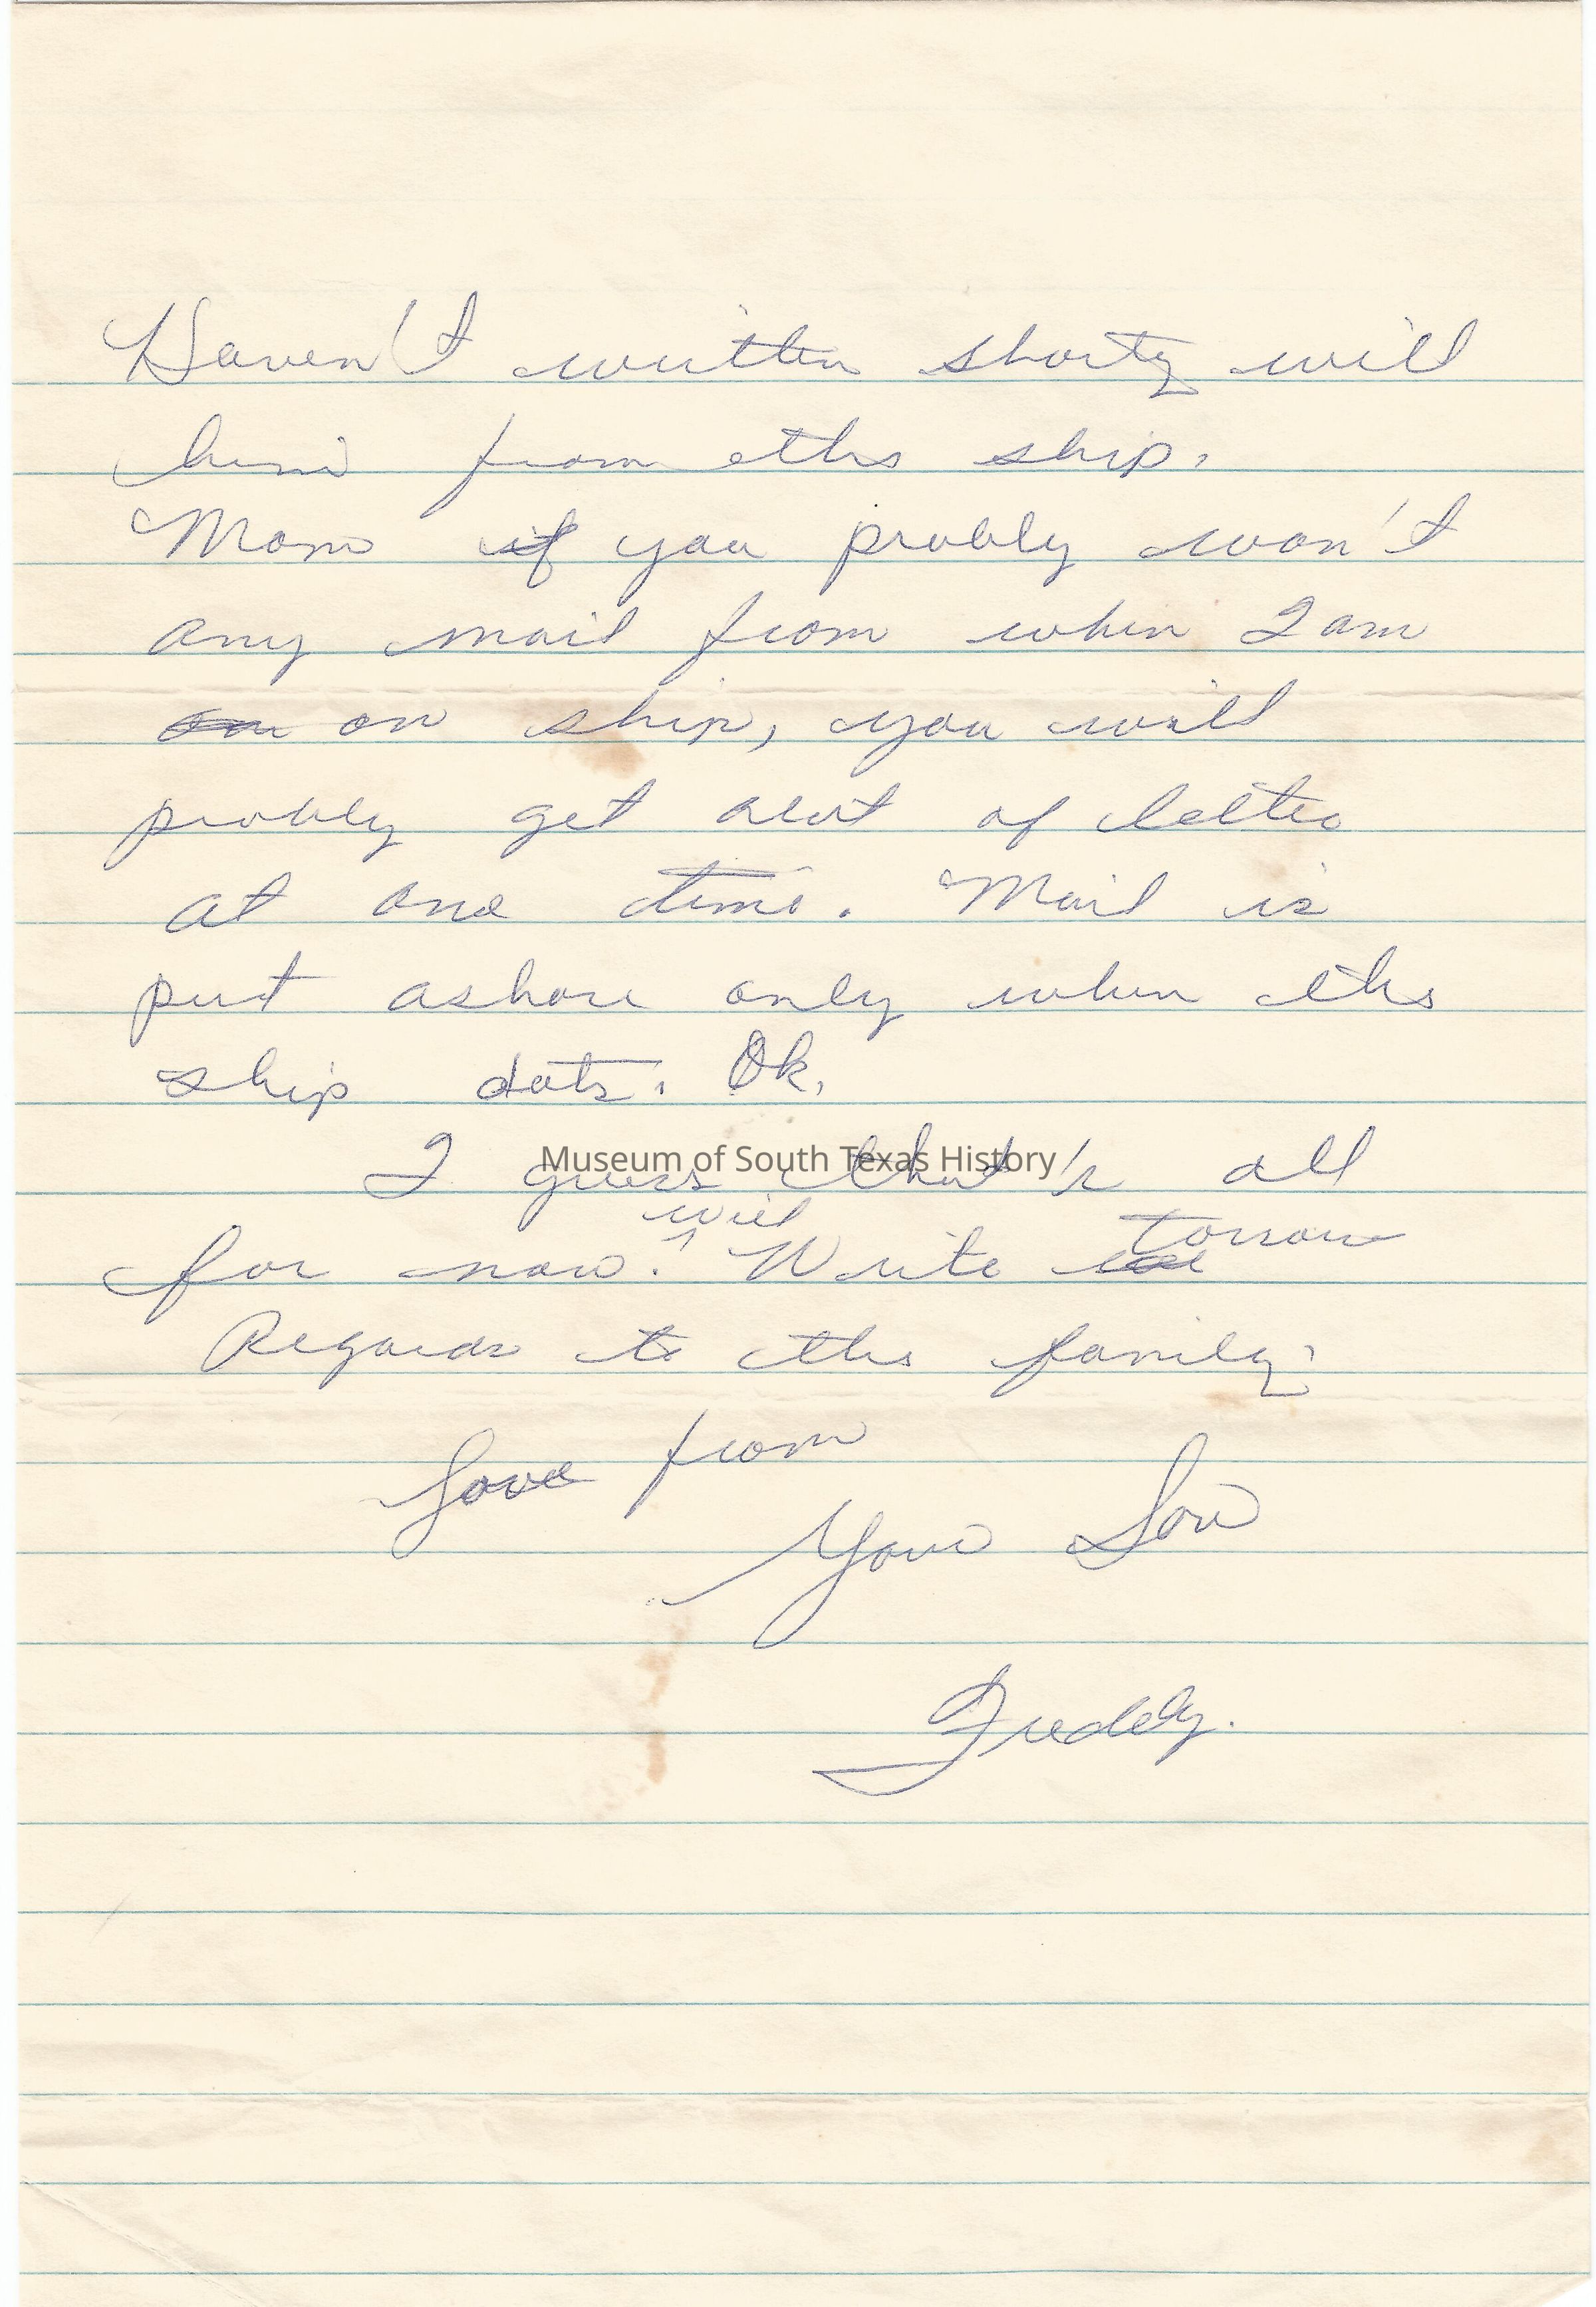 Haven't written shorty will
him from the ship.
Mom if you probly won't
any mail from when I am
on on ship, you will
probly get alot of letter
at one time. Mail is
put ashore only when the
ship dots. Ok.
I guess that's all
Museum of South Texas History
will
for now. Write torrow
Regards to the family.
Love from
Your Son
Freddy.